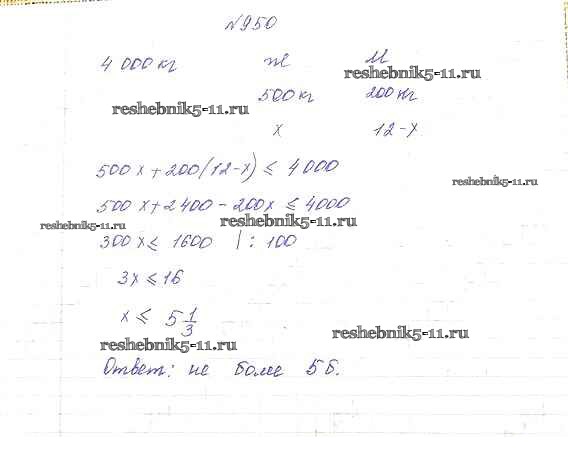 №950
4 000 кг ж М
reshebnik5-11.ru
500 кг 200 кг
reshebnik5-11.ru
x 12-x
500x+200(12-x) ≤ 4000
reshebnik5-11.ru
500x+2400-200x ≤ 4000
reshebnik5-11.ru
reshebnik5-11.ru
300x ≤ 1600 | : 100
3x ≤ 16
x ≤ 5 1/3
reshebnik5-11.ru
reshebnik5-11.ru
Ответ: не более 5 б.